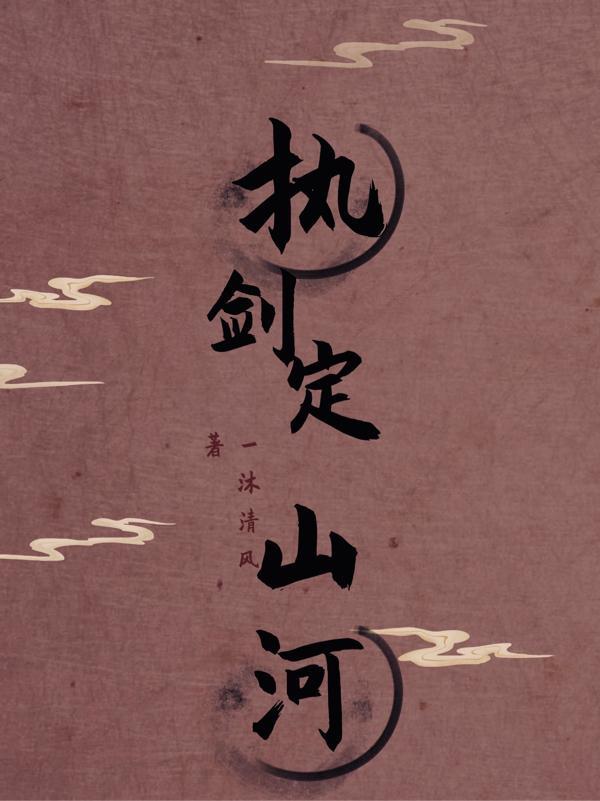 执剑定山河
一沐清风
著